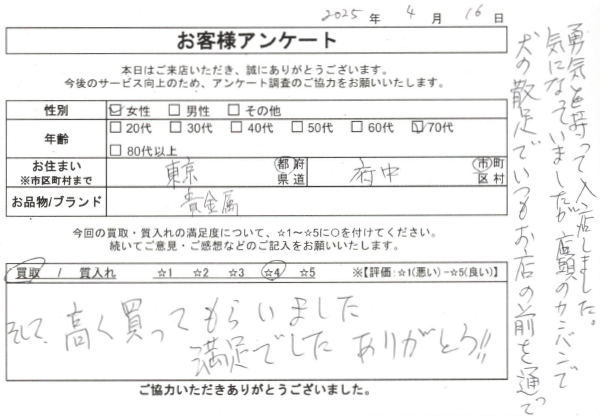 2025 年 4 月 16 日
お客様アンケート
本日はご来店いただき、誠にありがとうございます。
今後のサービス向上のため、アンケート調査のご協力をお願いいたします。
性別 ☑ 女性 □ 男性 □ その他
年齢 □ 20代 □ 30代 □ 40代 □ 50代 □ 60代 ☑ 70代
□ 80代以上
お住まい ※市区町村まで 東京 都府県道 府中 市町区村
お品物/ブランド 貴金属
今回の買取・質入れの満足度について、☆1～☆5に○を付けてください。
続いてご意見・ご感想などのご記入をお願いいたします。
買取 / 質入れ ☆1 ☆2 ☆3 ☆4 ☆5 ※【評価:☆1(悪い)−☆5(良い)】
そして、高く買ってもらいました
満足でした ありがとう!!
ご協力いただきありがとうございました。
犬の散足でいつもお店の前を通って
気になっていましたが店頭のカンバンで
勇気を持って入店しました。